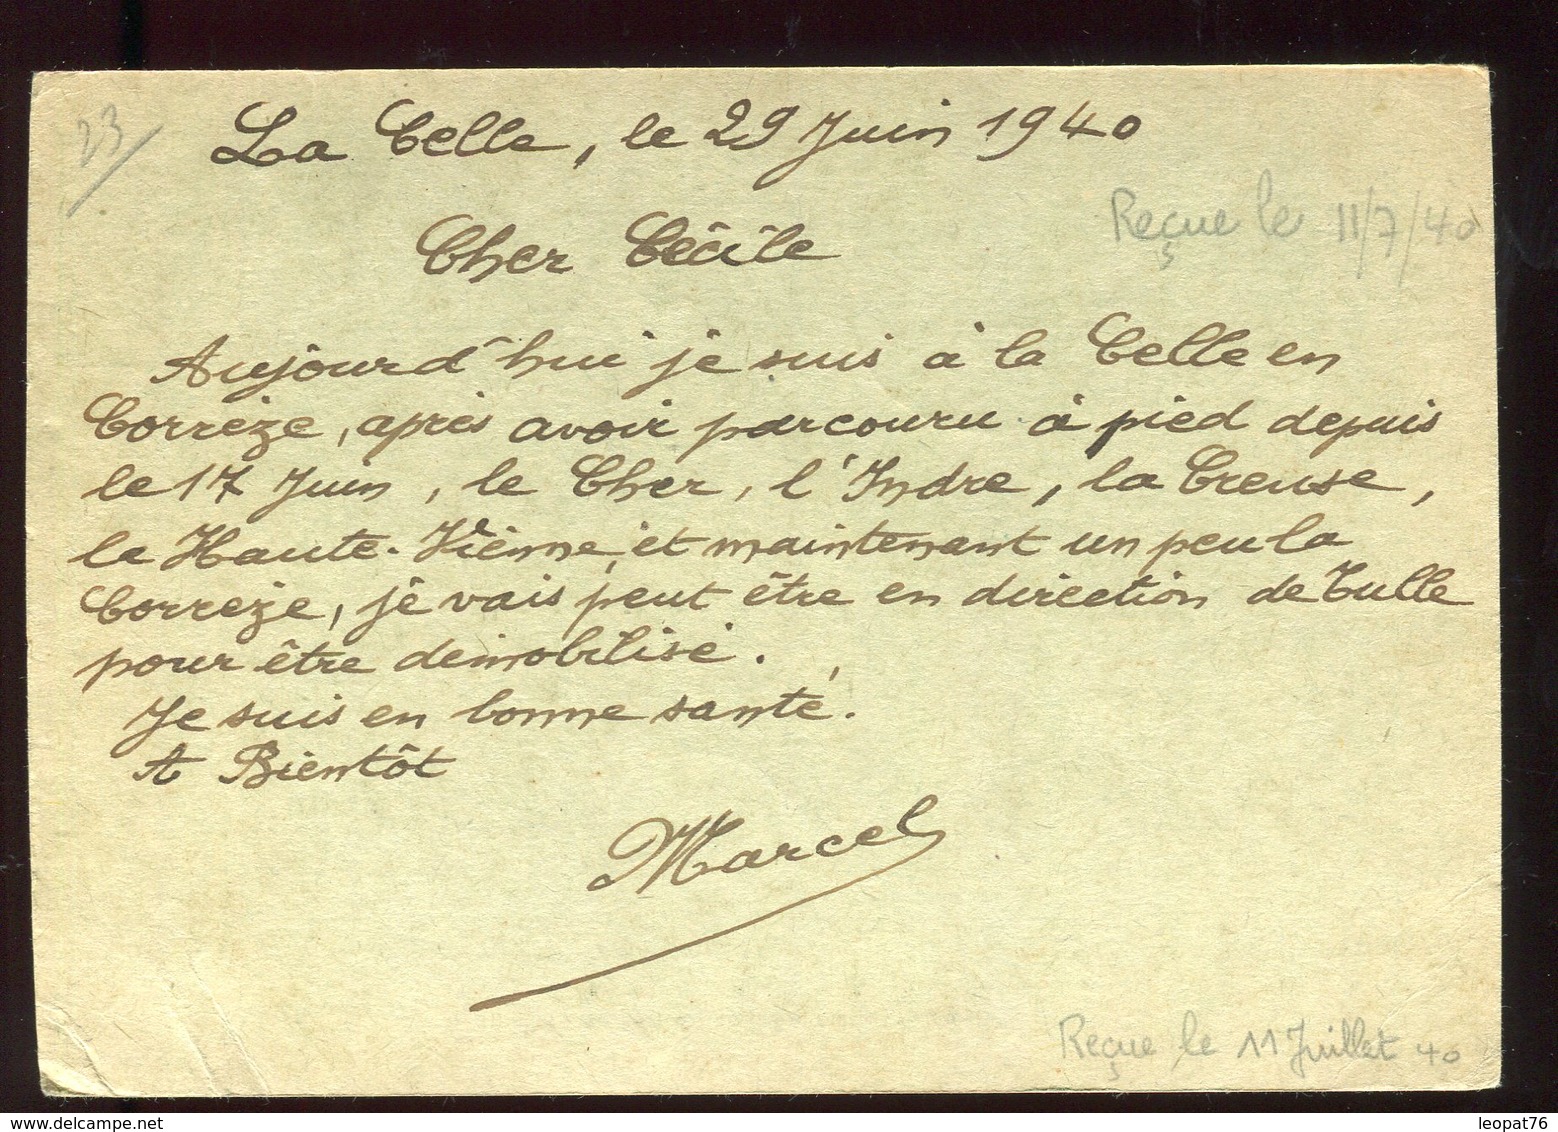 23
La Celle, le 29 Juin 1940
Reçue le 11/7/40
Cher Cécile
Aujourd'hui je suis à la Celle en
Corrèze, après avoir parcouru à pied depuis
le 17 Juin, le Cher, l'Indre, la Creuse,
la Haute-Vienne, et maintenant un peu la
Corrèze, je vais peut être en direction de Tulle
pour être démobilisé.
Je suis en bonne santé.
A Bientôt
Marcel
Reçue le 11 Juillet 40
leopat76